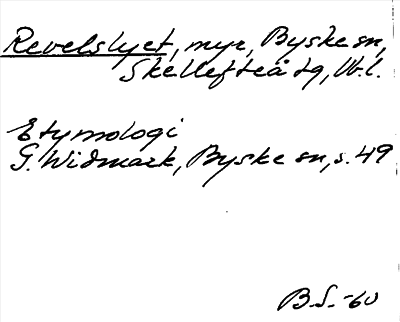 Revelslyet, myr, Byske sn,
Skellefteå tg, Vb. l.
Etymologi
G. Widmark, Byske sn, s. 49
B.S. -60